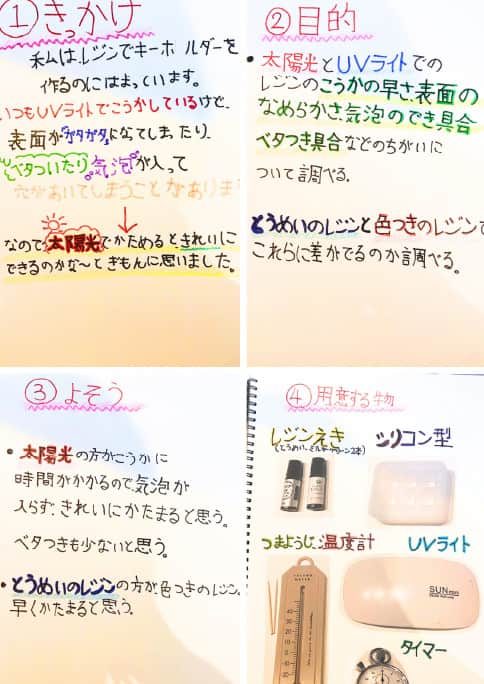 ①きっかけ
私はレジンでキーホルダーを
作るのにはまっています。
いつもUVライトでこうかしているけど、
表面がガタガタになってしまったり、
ベタついたり気泡が入って
穴があいてしまうことがあります
なので太陽光でかためると、きれいに
できるのかな〜とぎもんに思いました。
②目的
・太陽光とUVライトでの
レジンのこうかの早さ、表面の
なめらかさ、気泡のでき具合
ベタつき具合などのちがいに
ついて調べる。
とうめいのレジンと色つきのレジンで
これらに差がでるのか調べる。
③よそう
・太陽光の方がこうかに
時間がかかるので気泡が
入らず、きれいにかたまると思う。
ベタつきも少ないと思う。
・とうめいのレジンの方が色つきのレジン
早くかたまると思う。
④用意する物
レジンえき
シリコン型
つまようじ
温度計
UVライト
SUNmini
タイマー